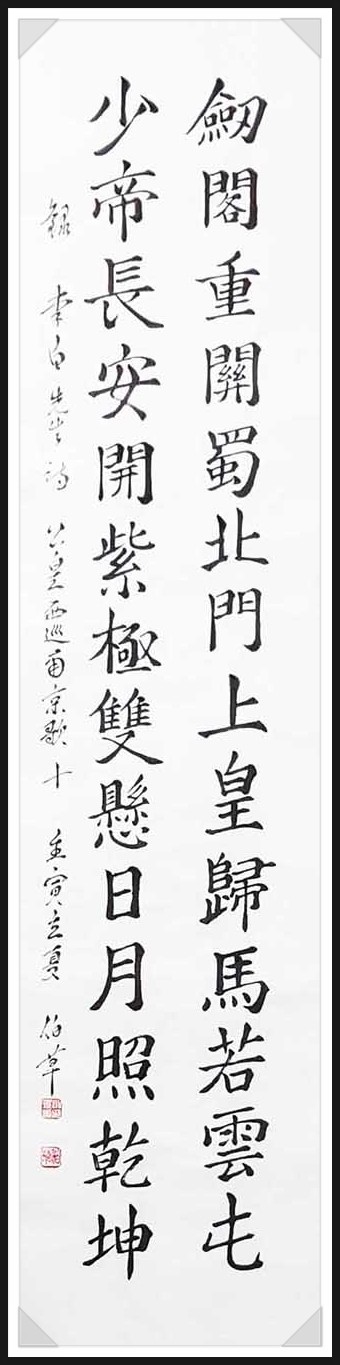 劔閣重關蜀北門上皇歸馬若雲屯
少帝長安開紫極雙懸日月照乾坤
錄 李白先生詩 上皇西巡南京歌 十 壬寅立夏 伯草